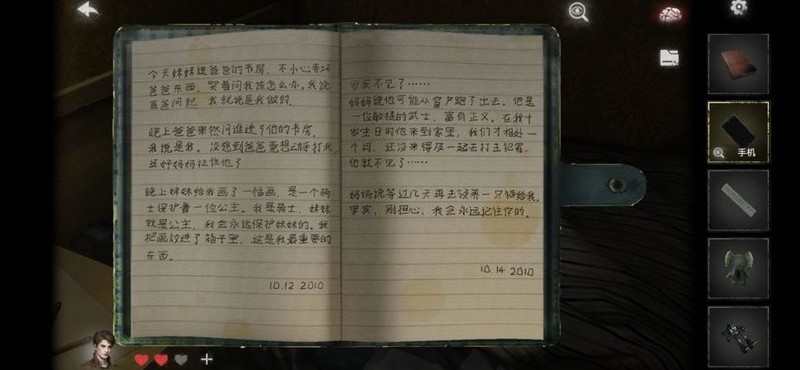 今天妹妹进爸爸的书房，不小心弄坏
爸爸东西，哭着问我该怎么办。我说
爸爸问起，我就说是我做的。
晚上爸爸果然问谁进了他的书房，
我说是我。没想到爸爸竟想动手打我，
还好妈妈拦住他了
晚上妹妹给我画了一幅画，是一个骑
士保护着一位公主。我是骑士，妹妹
就是公主，我会永远保护妹妹的。我
把画放进了箱子里，这是我最重要的
东西。
10.12 2010
罗宾不见了……
妈妈说他可能从窗户跑了出去。他是
一位敏捷的武士，富有正义。在我十
岁生日时他来到家里，我们才相处一
个月，还没来得及一起去打击犯罪，
他就不见了……
妈妈说等过几天再去领养一只猫给我，
罗宾，别担心，我会永远记住你的。
10.14 2010
手机